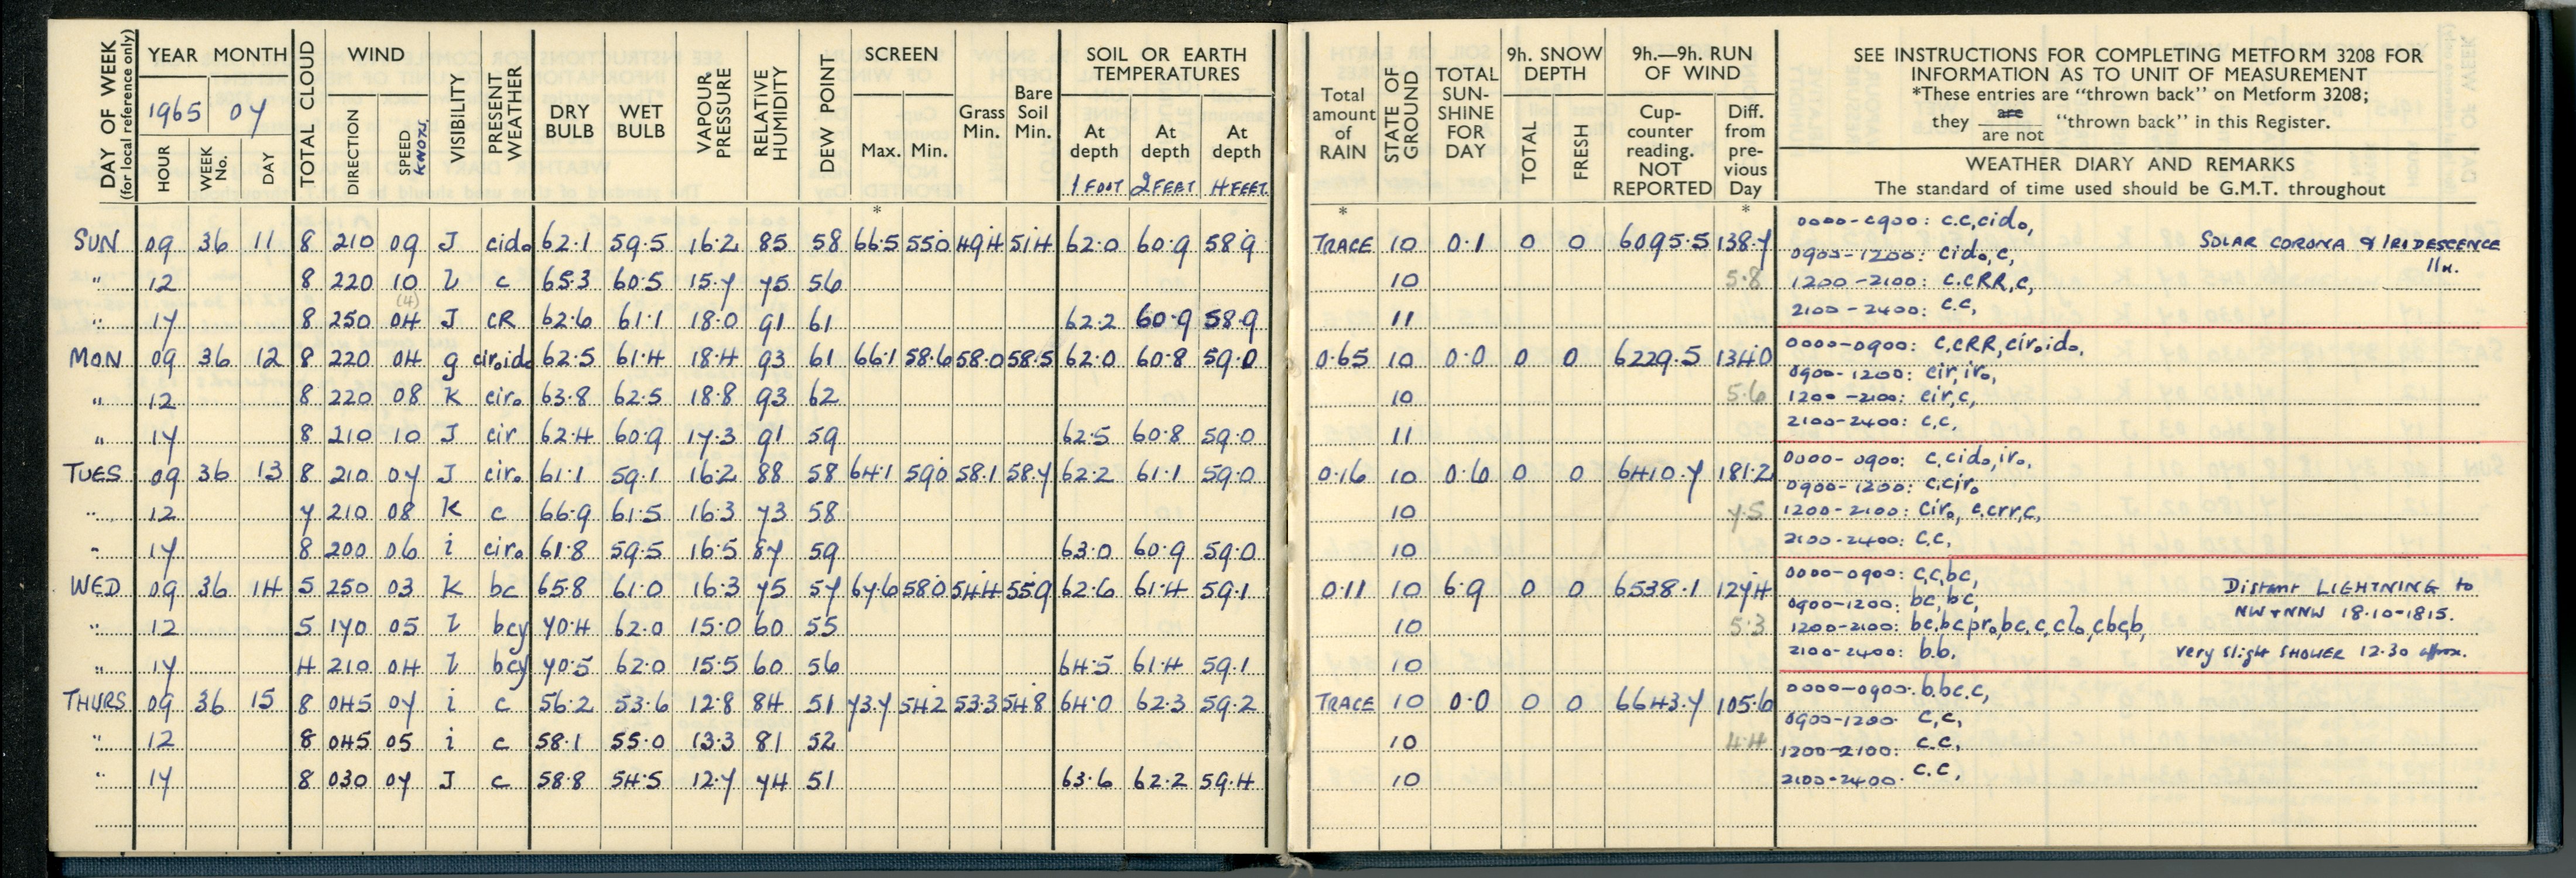 DAY OF WEEK (for local reference only)
YEAR MONTH
1965 07
HOUR WEEK No. DAY
TOTAL CLOUD
WIND
DIRECTION SPEED KNOTS.
VISIBILITY
PRESENT WEATHER
DRY BULB
WET BULB
VAPOUR PRESSURE
RELATIVE HUMIDITY
DEW POINT
SCREEN
Max. Min.
*
Grass Min.
Bare Soil Min.
SOIL OR EARTH TEMPERATURES
At depth At depth At depth
1 FOOT 2 FEET 4 FEET
Total amount of RAIN
*
STATE OF GROUND
TOTAL SUN-SHINE FOR DAY
9h. SNOW DEPTH
TOTAL FRESH
9h.—9h. RUN OF WIND
Cup-counter reading. NOT REPORTED
Diff. from pre-vious Day
*
SEE INSTRUCTIONS FOR COMPLETING METFORM 3208 FOR
INFORMATION AS TO UNIT OF MEASUREMENT
*These entries are "thrown back" on Metform 3208;
they are / are not "thrown back" in this Register.
WEATHER DIARY AND REMARKS
The standard of time used should be G.M.T. throughout
SUN 09 36 11 8 210 09 J cid₀ 62.1 59.5 16.2 85 58 66.5 55.0 49.4 51.4 62.0 60.9 58.9 TRACE 10 0.1 0 0 6095.5 138.7
" 12 8 220 10 l c 65.3 60.5 15.7 75 56 10 5.8
(4)
" 17 8 250 04 J cR 62.6 61.1 18.0 91 61 62.2 60.9 58.9 11
0000-0900: c.c,cid₀,
0900-1200: cid₀,c,
1200-2100: c.cRR,c,
2100-2400: c.c,
SOLAR CORONA & IRIDESCENCE
MON 09 36 12 8 220 04 g cir₀id₀ 62.5 61.4 18.4 93 61 66.1 58.6 58.0 58.5 62.0 60.8 59.0 0.65 10 0.0 0 0 6229.5 134.0
" 12 8 220 08 K cir₀ 63.8 62.5 18.8 93 62 10 5.6
" 17 8 210 10 J cir 62.4 60.9 17.3 91 59 62.5 60.8 59.0 11
0000-0900: c,cRR,cir₀id₀,
0900-1200: cir,ir₀,
1200-2100: cir,c,
2100-2400: c,c,
TUES 09 36 13 8 210 07 J cir₀ 61.1 59.1 16.2 88 58 64.1 59.0 58.1 58.7 62.2 61.1 59.0 0.16 10 0.6 0 0 6410.7 181.2
" 12 7 210 08 K c 66.9 61.5 16.3 73 58 10 7.5
" 17 8 200 06 i cir₀ 61.8 59.5 16.5 87 59 63.0 60.9 59.0 10
0000-0900: c,cid₀,ir₀,
0900-1200: c.cir₀
1200-2100: cir₀, c.crr,c,
2100-2400: c.c,
WED 09 36 14 5 250 03 K bc 65.8 61.0 16.3 75 57 67.6 58.0 54.4 55.9 62.6 61.4 59.1 0.11 10 6.9 0 0 6538.1 127.4
" 12 5 170 05 l bcy 70.4 62.0 15.0 60 55 10 5.3
" 17 4 210 04 l bcy 70.5 62.0 15.5 60 56 64.5 61.4 59.1 10
0000-0900: c,c,bc,
0900-1200: bc,bc,
1200-2100: bc,bcpr₀,bc,c,cl₀,cbcb,
2100-2400: b.b.
Distant LIGHTNING to
NW + NNW 18.10-1815.
very slight SHOWER 12.30 approx.
THURS 09 36 15 8 045 07 i c 56.2 53.6 12.8 84 51 73.7 54.2 53.3 54.8 64.0 62.3 59.2 TRACE 10 0.0 0 0 6643.7 105.6
" 12 8 045 05 i c 58.1 55.0 13.3 81 52 10 4.4
" 17 8 030 07 J c 58.8 54.5 12.7 74 51 63.6 62.2 59.4 10
0000-0900: b.bc.c,
0900-1200: c,c,
1200-2100: c.c,
2100-2400: c.c,